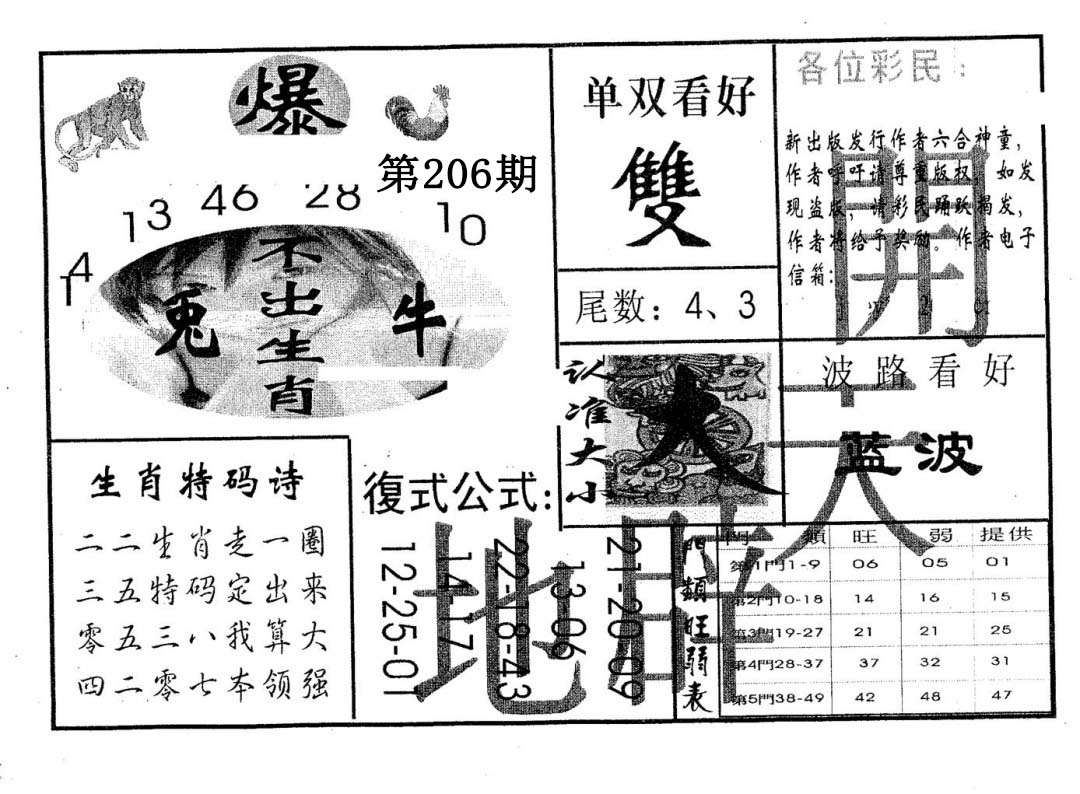 爆
第206期
14 13 46 28 10
不出生肖
兔
牛
单双看好
雙
尾数：4、3
各位彩民：
新出版发行作者六合神童，
作者呼吁请尊重版权，如发
现盗版，请彩民踊跃揭发，
作者将给予奖励。作者电子
信箱：
認准大小
大
波路看好
蓝波
開
天
地
生肖特码诗
二二生肖走一圈
三五特码定出来
零五三八我算大
四二零七本领强
復式公式：
12-25-01
14-17
22-18-43
13-06
21-20-09
門類旺弱表
門類 旺 弱 提供
第1門1-9 06 05 01
第2門10-18 14 16 15
第3門19-27 21 21 25
第4門28-37 37 32 31
第5門38-49 42 48 47